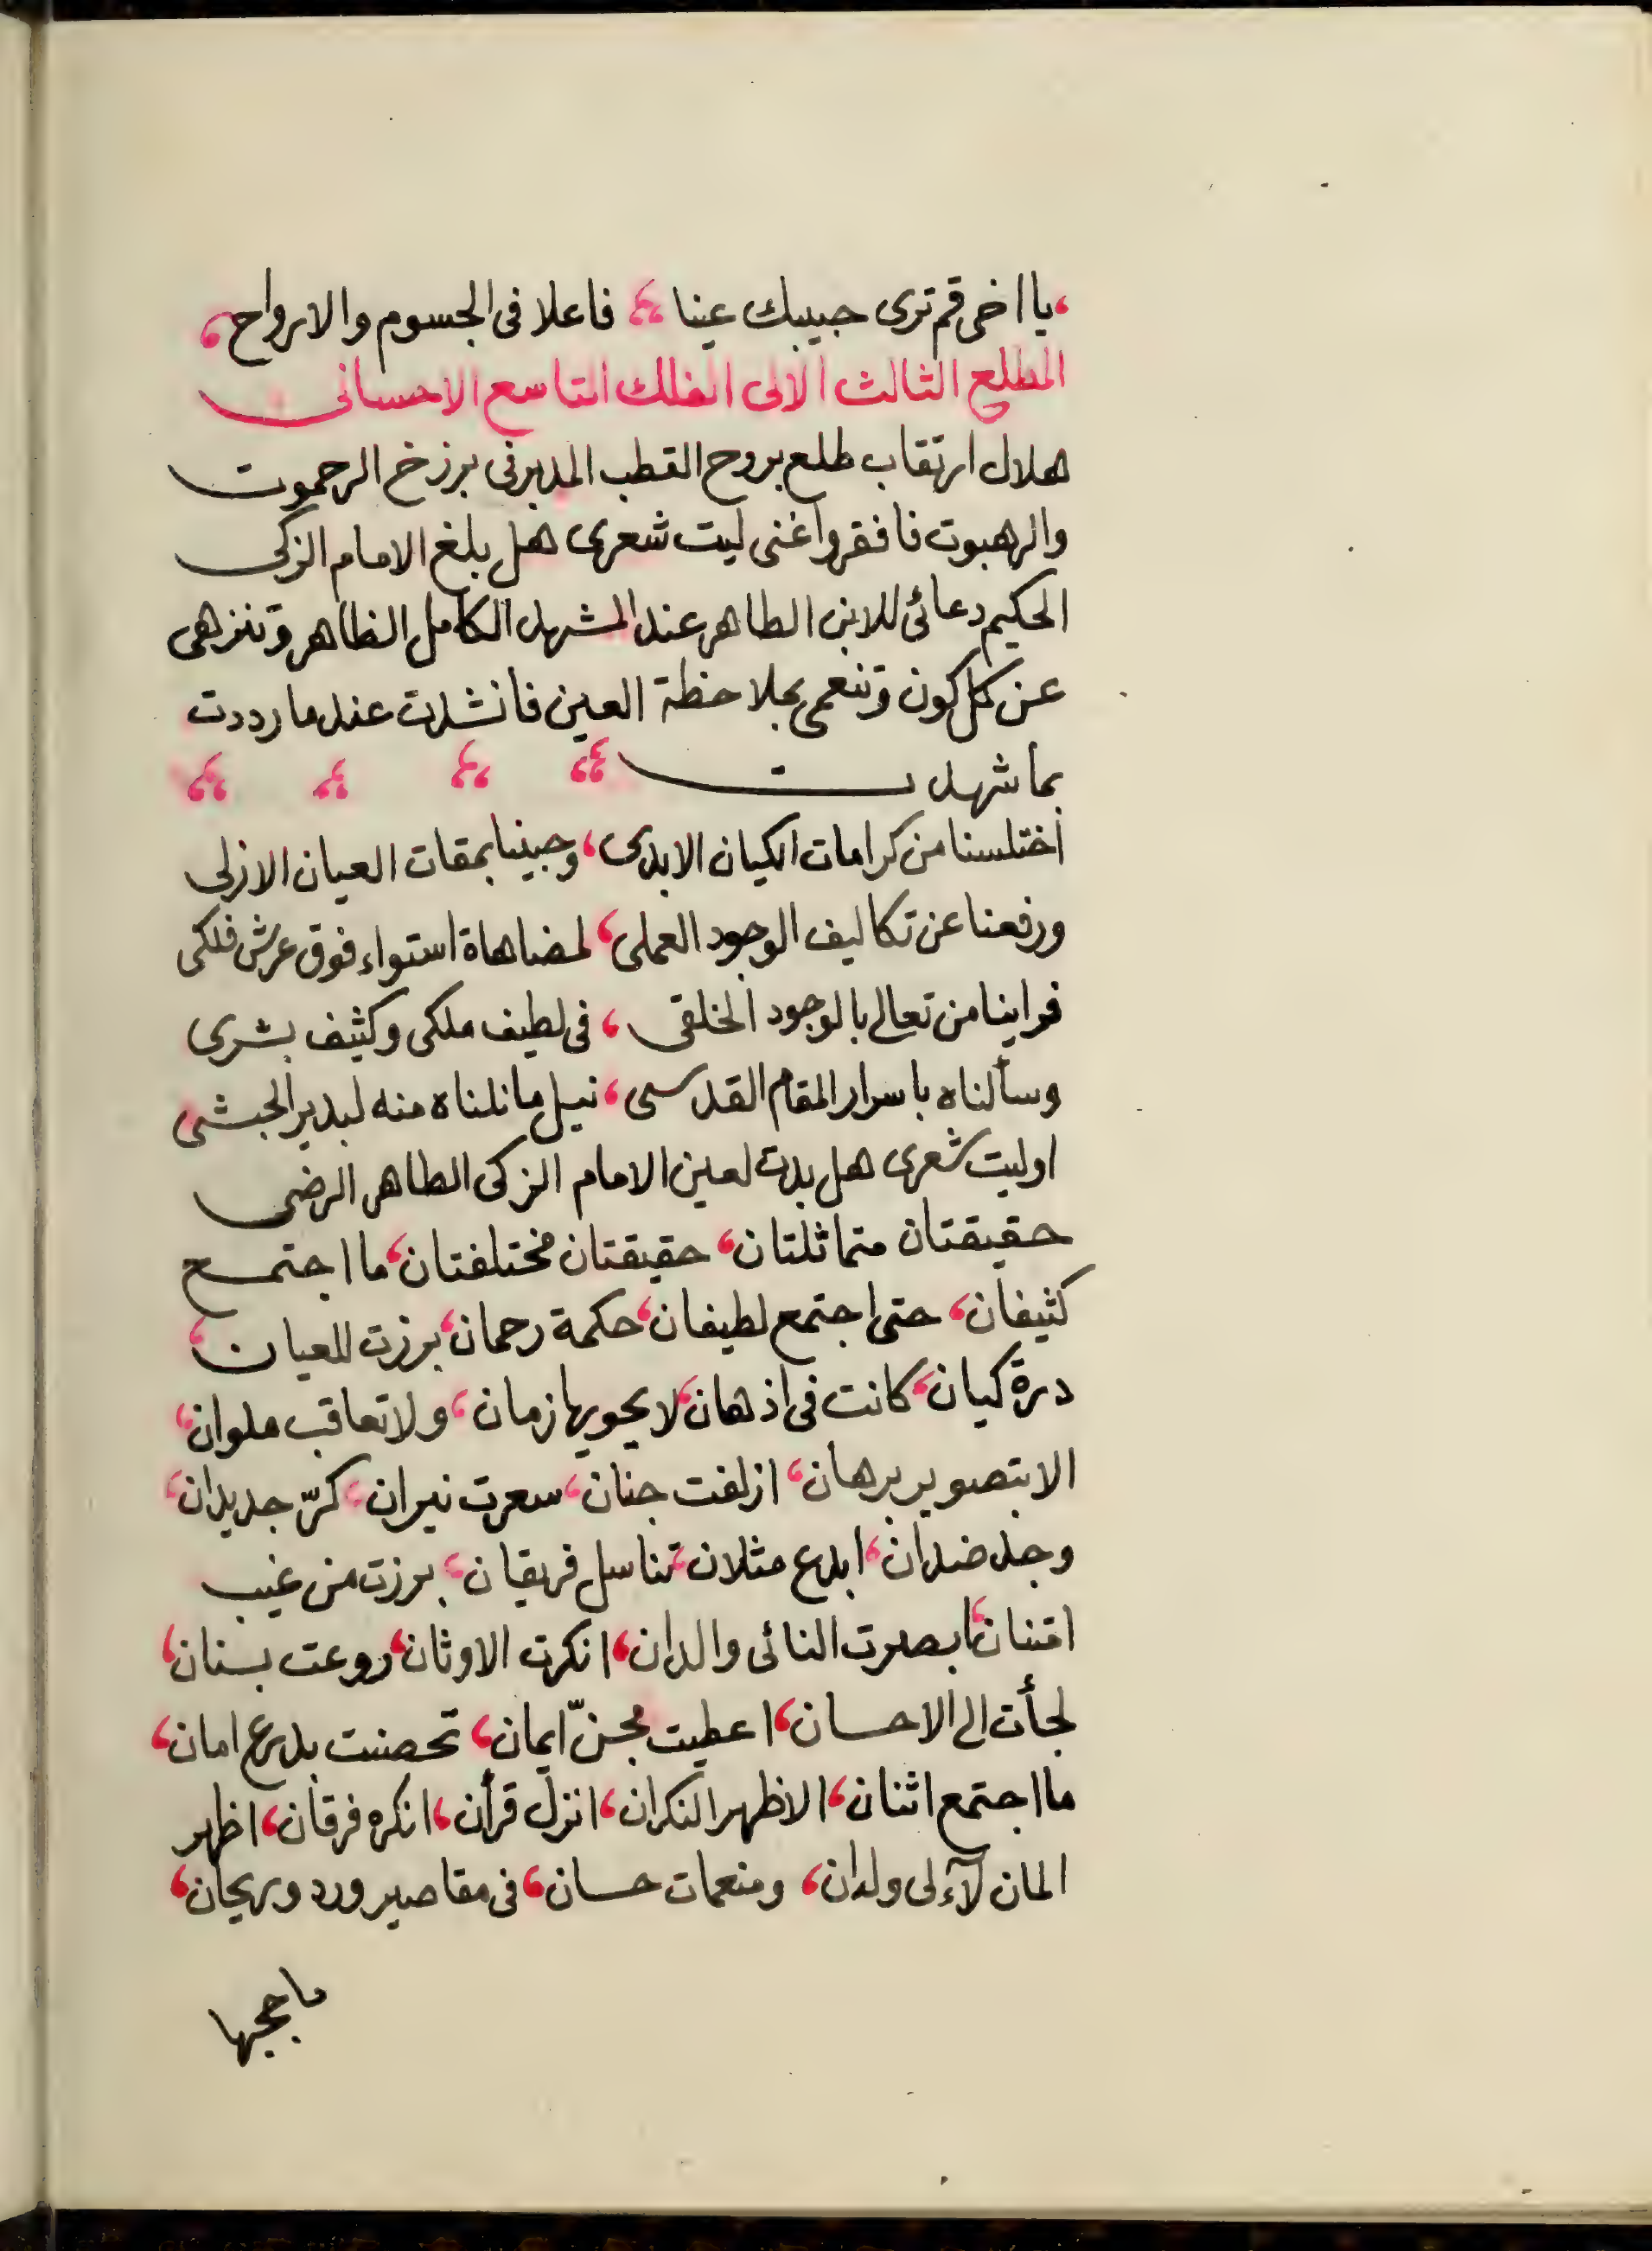 ، يا اخى قم ترى حبيبك عينا ؛ فاعلا فى الجسوم والارواح ؛
المطلع الثالث الالى الفلك التاسع الاحسانى
هلال ارتقاب طلع بروح القطب المدبر فى برزخ الرحموت
والرهبوت فافقر واغنى ليت شعرى هل بلغ الامام الزكى
الحكيم دعائى للابن الطاهر عند المشهد الكامل الظاهر وتنزهى
عن كل كون وتنعمى بملاحظة العين فانشدت عند ما رددت
بما شهدت
اختلسنا من كرامات الكيان الابدى، وجبينا بمقات العيان الازلى
ورفعنا عن تكاليف الوجود العملى، لمضاهاة استواء فوق عرش فلكى
فراينا من تعالى بالوجود الخلقى، فى لطيف ملكى وكثيف بشرى
وسألناه باسرار المقام القدسى، نيل ما نلناه منه لبدير الحبشى
اوليت شعرى هل بدت لعين الامام الزكى الطاهر الرضى
حقيقتان متماثلتان، حقيقتان مختلفتان، ما اجتمع
كثيفان، حتى اجتمع لطيفان، حكمة رحمان، برزت للعيان،
درة كيان، كانت فى اذهان، لا يحويها زمان، ولا تعاقب ملوان،
الا بتصوير برهان، ازلفت جنان، سعرت نيران، كرّ جديدان،
وجد ضدان، ابدع مثلان، تناسل فريقان، برزت من غيب
امتنان، ابصرت النائى والدان، انكرت الاوثان، روعت بسنان،
لجأت الى الاحسان، اعطيت مجنّ ايمان، تحصنت بدرع امان،
ما اجتمع اثنان، الا ظهر النكران، انزل قرأن، انكره فرقان، اظهر
المان لآلى ولدان، ومنعمات حسان، فى مقاصير ورد وريحان،
ما حجبها